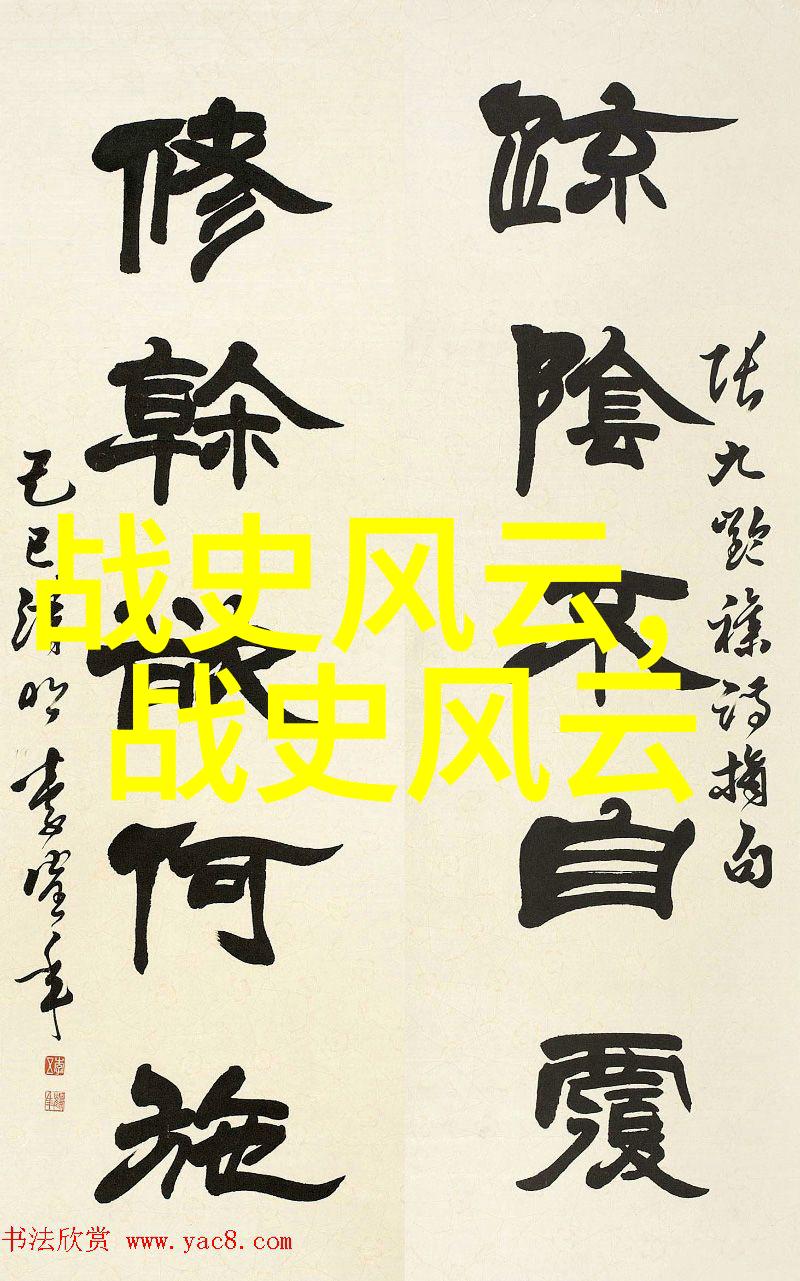 張九齡襍詩摘句
踈陰不自覆
修榦欲何施
己巳清明
战史风云,
战史风云
书法欣赏 www.yac8.com